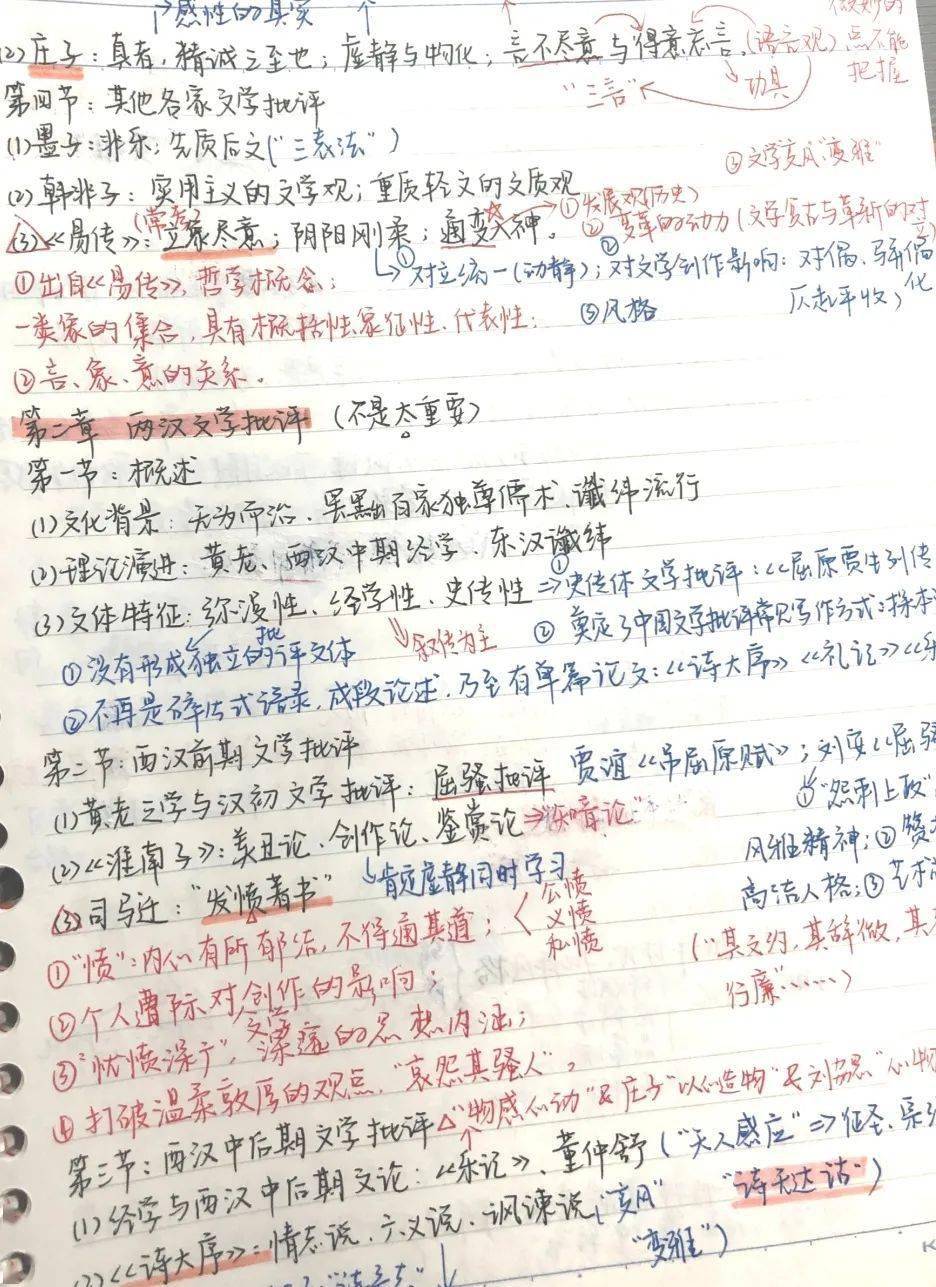 感性的真实
微妙的
(2)庄子：真者，精诚之至也；虚静与物化；言不尽意与得意忘言。(语言观)点不能
把握
"三言"
工具
第四节：其他各家文学批评
(1)墨子：非乐；先质后文("三表法")
③文学变风"变雅"
(2)韩非子：实用主义的文学观；重质轻文的文质观
①发展观(历史)
(常考)
(3)《易传》：立象尽意；阴阳刚柔；通变入神。
②变革的动力(文学复古与革新的对立)
①出自《易传》，哲学概念；
①对立统一(动静)；②对文学创作影响：对偶、骈偶化
一类象的集合，具有概括性.象征性.代表性；
③风格
仄起平收；
②言、象、意的关系。
第二章 两汉文学批评(不是太重要)
第一节：概述
(1)文化背景：无为而治、罢黜百家独尊儒术、谶纬流行
(2)理论演进：黄老、西汉中期经学 东汉谶纬
(3)文体特征：弥漫性、经学性、史传性⇒①史传体文学批评：《屈原贾生列传
叙传为主 ②奠定了中国文学批评常见写作方式：
①没有形成独立的批评文体
②不再是碎片式语录，成段论述，乃至有单篇论文：《诗大序》《礼记》《乐
第二节：两汉前期文学批评
(1)黄老之学与汉初文学批评：屈骚批评 贾谊《吊屈原赋》；刘安《屈骚
①"怨刺上政"
(2)《淮南子》：美丑论、创作论、鉴赏论⇒"知音论"
风雅精神；②赞
肯定虚静同时学习
高洁人格；③艺术
(3)司马迁："发愤著书"
公愤
义愤
私愤
①"愤"：内心有所郁结，不得通其道；
("其文约，其辞微，其
行廉……)
②个人遭际对创作的影响；
文学
③"忧愤深广"，深邃的思想内涵；
④打破温柔敦厚的观点，"哀怨其骚人"。
△"物感心动"&庄子"以心造物"&刘勰"心物
第三节：两汉中后期文学批评
(1)经学与两汉中后期文论：《乐记》、董仲舒("天人感应"⇒征圣、宗经
"诗无达诂")
(2)《诗大序》：情志说、六义说、讽谏说("变风"
"变雅")